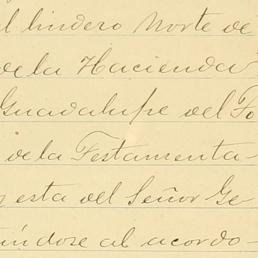 l lindero Norte de
de la Hacienda
Guadalupe del Fo
de la Testamenta-
esta del Señor Ge
tíndose al acordo-